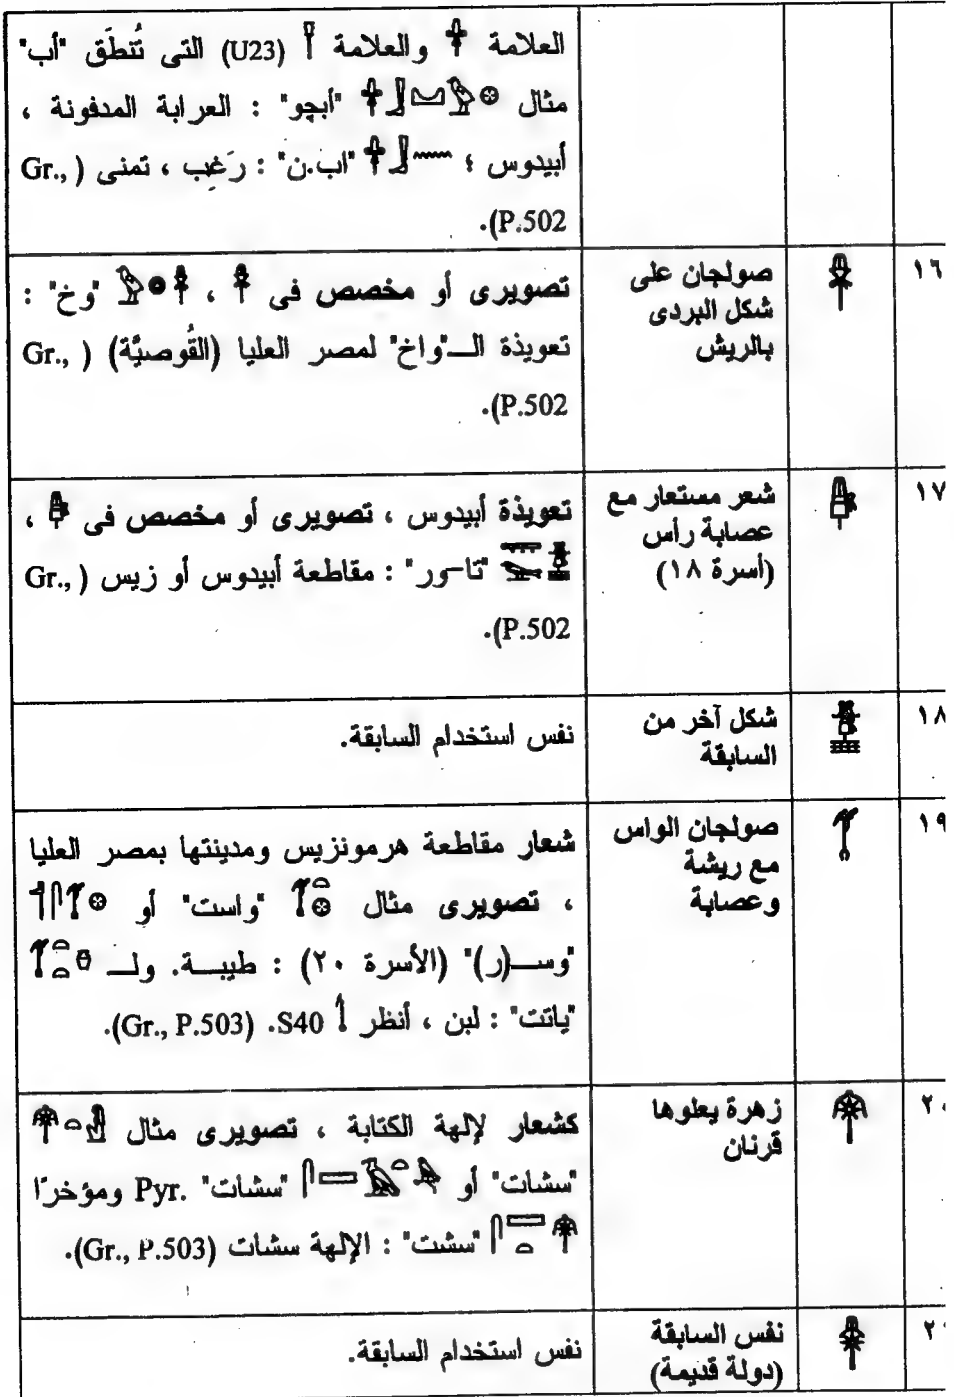 العلامة 𓋬 والعلامة 𓍋 (U23) التى تُنطَق "أب"
مثال "أبچو" : العرابة المدفونة ،
أبيدوس ؛ "اب.ن" : رَغِب ، تمنى (Gr.,
P.502).
١٦
صولجان على
شكل البردى
بالريش
تصويرى أو مخصص فى ، "وخ" :
تعويذة الـ"واخ" لمصر العليا (القُوصيَّة) (Gr.,
P.502).
١٧
شعر مستعار مع
عصابة رأس
(أسرة ١٨)
تعويذة أبيدوس ، تصويرى أو مخصص فى ،
"تا-ور" : مقاطعة أبيدوس أو زيس (Gr.,
P.502).
١٨
شكل آخر من
السابقة
نفس استخدام السابقة.
١٩
صولجان الواس
مع ريشة
وعصابة
شعار مقاطعة هرمونزيس ومدينتها بمصر العليا
، تصويرى مثال "واست" أو
"وســ(ر)" (الأسرة ٢٠) : طيبــة. ولــ
"ياتت" : لبن ، أنظر S40. (Gr., P.503).
٢٠
زهرة يعلوها
قرنان
كشعار لإلهة الكتابة ، تصويرى مثال
"سشات" أو "سشات" Pyr. ومؤخرًا
"سشت" : الإلهة سشات (Gr., P.503).
نفس السابقة
(دولة قديمة)
نفس استخدام السابقة.